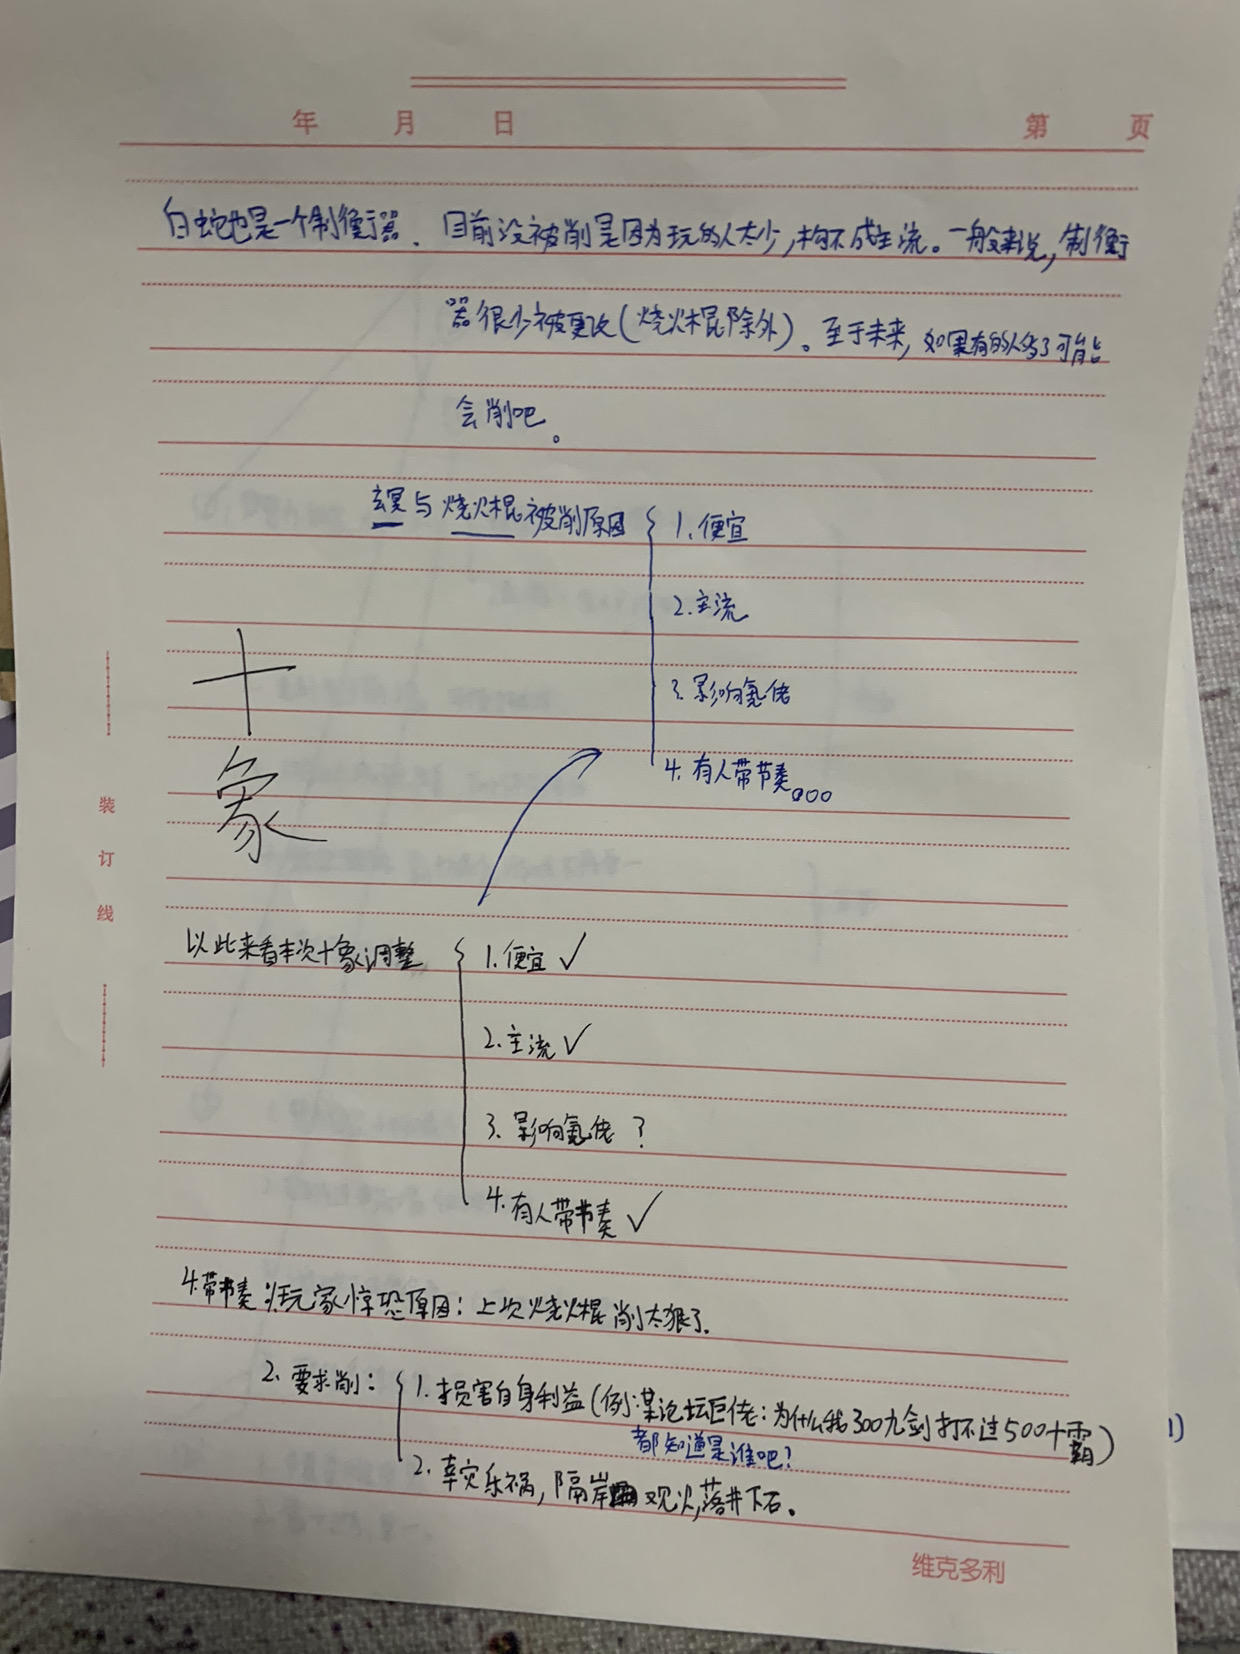 年 月 日 第 页
白蛇也是一个制衡器.目前没被削是因为玩的人太少,构不成主流。一般来说,制衡
器很少被更改(烧火棍除外)。至于未来,如果有的人多了可能
会削吧。
玄冥与烧火棍被削原因 1.便宜
2.主流
3.影响氪佬
4.有人带节奏。ooo
十
象
以此来看本次十象调整 1.便宜✓
2.主流✓
3.影响氪佬?
4.有人带节奏✓
4.带节奏 玩家惊恐原因:上次烧火棍削太狠了.
2.要求削: 1.损害自身利益(例:某论坛巨佬:为什么我300九剑打不过500十霸)
都知道是谁吧?
2.幸灾乐祸,隔岸观火,落井下石。
装
订
线
维克多利